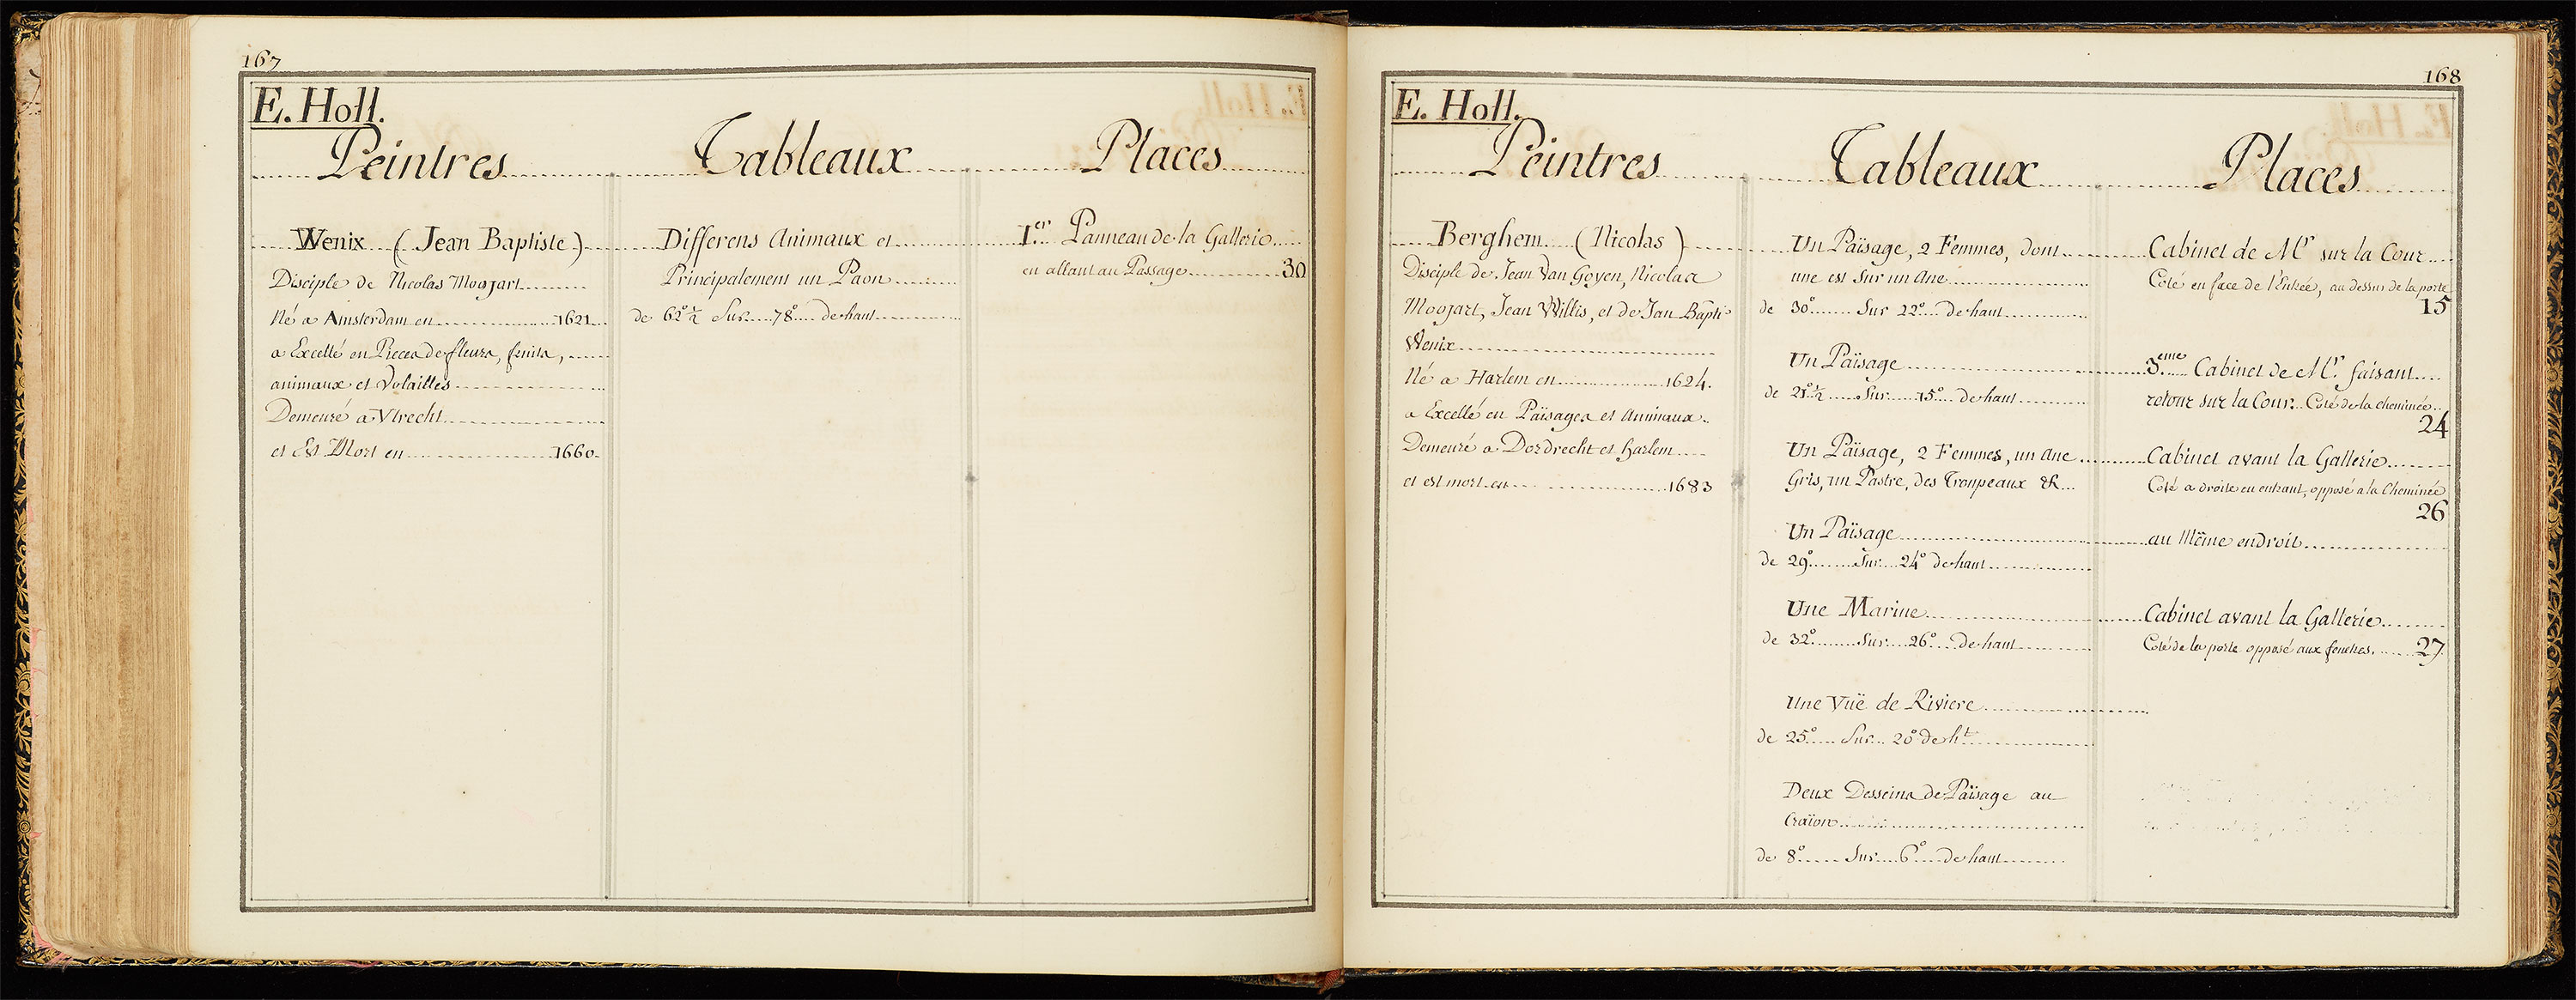 167
E. Holl.
Peintres
Tableaux
Places
Wenix (Jean Baptiste)
Disciple de Nicolas Moojart
Né a Amsterdam en 1621
a Excellé en Pieces de fleurs, fruits,
animaux et Volailles
Demeuré a Vtrecht
et Est Mort en 1660
Differens Animaux et
Principalement un Paon
de 62° ½ Sur 78° de haut
1.er Panneau de la Gallerie
en allant au Passage 30
168
E. Holl.
Peintres
Tableaux
Places
Berghem (Nicolas)
Disciple de Jean Van Goyen, Nicolas
Moojart, Jean Willis, et de Jan Bapti
Wenix
Né a Harlem en 1624.
a Excellé en Païsages et Animaux.
Demeuré a Dordrecht et harlem
et est mort en 1683
Un Païsage, 2 Femmes, dont
une est Sur un Ane
de 30° Sur 22° de haut
Un Païsage
de 21° ½ Sur 15° de haut
Un Païsage, 2 Femmes, un Ane
Gris, un Pastre, des Troupeaux &
Un Païsage
de 29° Sur 24° de haut
Une Marine
de 32° Sur 26° de haut
Une Vüe de Riviere
de 25° Sur 20° de ht
Deux Desseins de Païsage au
Craïon
de 8° Sur 6° de haut
Cabinet de Mr sur la Cour
Coté en face de l'Entrée, au dessus de la porte
15
3.eme Cabinet de Mr. faisant
retour sur la Cour. Coté de la cheminée
24
Cabinet avant la Gallerie
Coté a droite en entrant, opposé a la Cheminée
26
au Même endroit
Cabinet avant la Gallerie
Coté de la porte opposé aux fenetres. 27